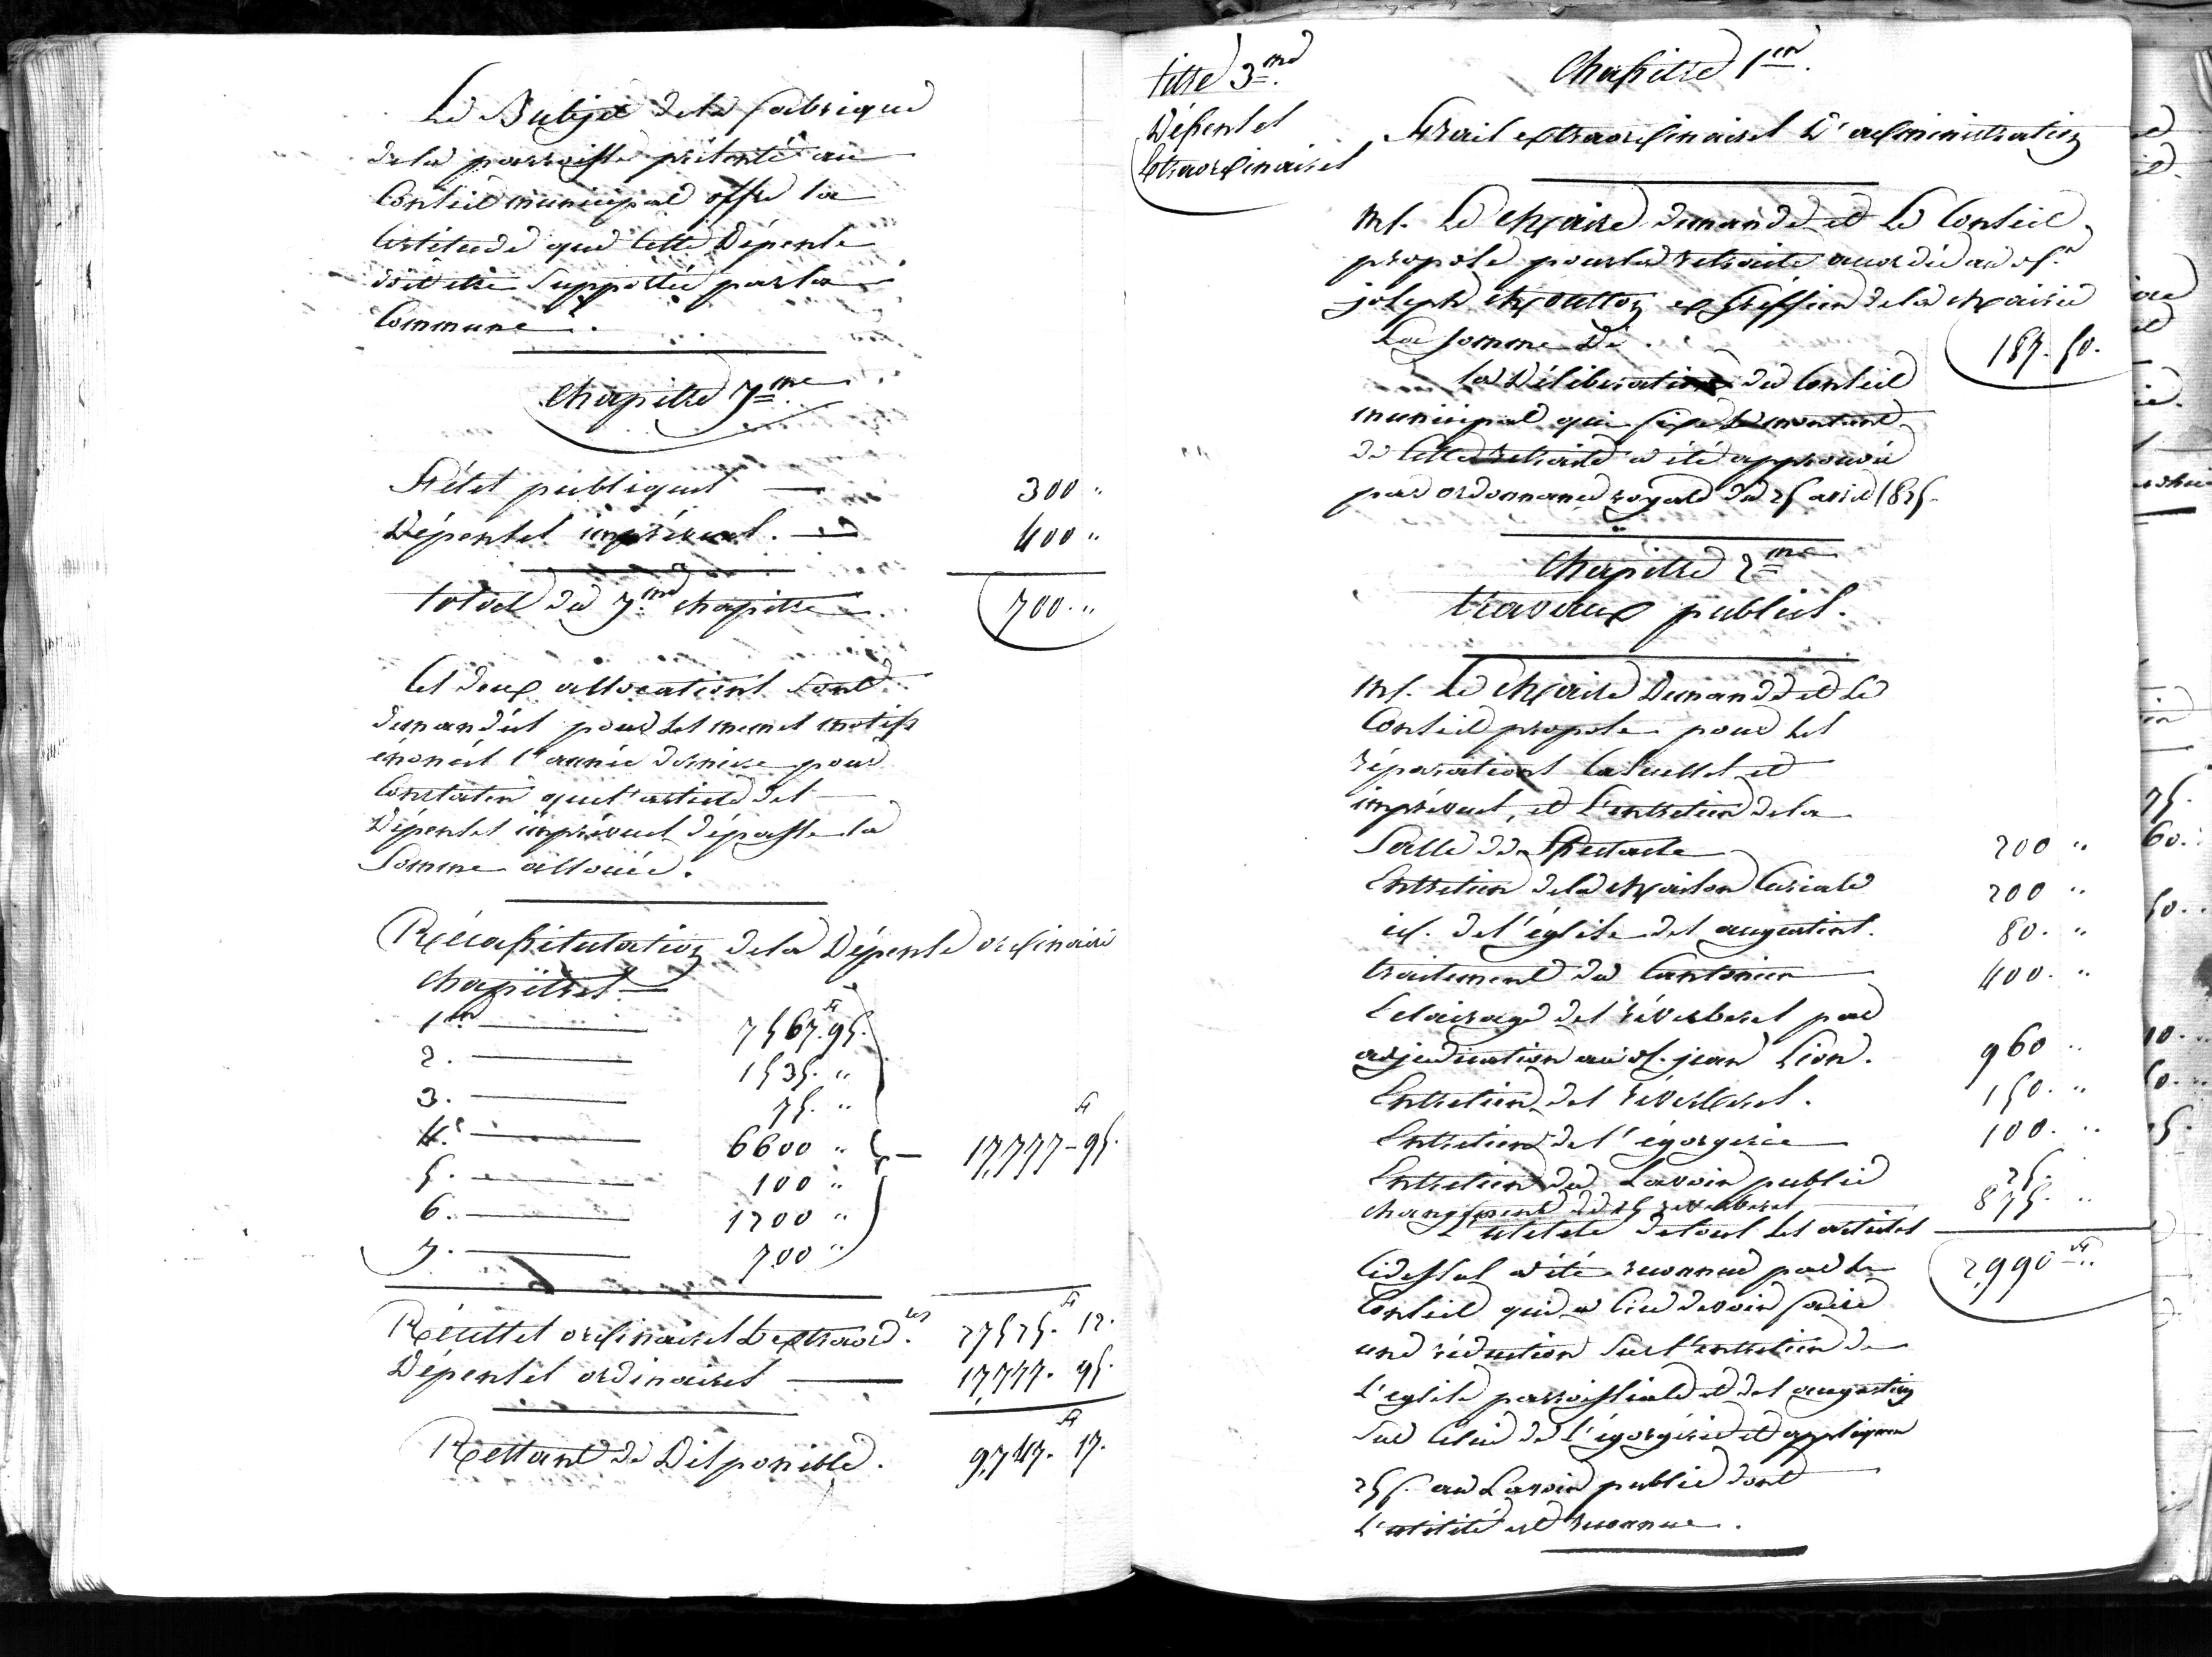 Le Budget de la fabrique
de la parroisse présenté au
Conseil municipal offre la
Certitude que cette Dépense
doit etre Supportée par la
Commune.
Chapitre 7.me
Fêtes publiques 300 "
Dépenses imprévues. 400 "
total du 7.me chapitre 700. "
Ces deux allocations sont
demandées pour les memes motifs
énoncés l'année derniere pour
Constater que l'article des
Dépenses imprévues dépasse la
Somme allouée.
Récapitulation de la Dépense ordinaire
Chapitres
1er 7567.f 95.
2. 1535. "
3. 75. "
4.e 6600 " 17,777 - 95.
5. 100 "
6. 1200 "
7. 700 "
Récettes ordinaires & extraord.res 27525.f 12.
Dépenses ordinaires 17,777. 95.
Restant de Disponible. 9,747.f 17.
titre 3.me
Dépenses
Extraordinaires
Chapitre 1er.
Frais extraordinaires d'administration
Mr. Le Maire demande et Le Conseil
propose pour la retraite accordée au Sr.
joseph Moutton ex Greffier de la Mairie
La Somme de 187. 50.
La Délibération du Conseil
municipal qui fixe le montant
de Cette retraite a été approuvée
par ordonnance royale du 25 avril 1825.
Chapitre 2.me
travaux publics.
Mr. Le Maire Demande et Le
Conseil propose pour les
réparations Casuelles et
imprévues, et L'entretien de la
Salle de Spectacle 200 "
Entretien de la Maison Curiale 200 "
id. de l'église des augustins. 80. "
traitement du Cantonier 400. "
Eclairage des réverberes par
adjudication au Sr. jean Lion. 960 "
Entretien des réverberes. 150. "
Entretien de l'égorgerie 100. "
Entretien du Lavoir public 25.
changement de 25 reverberes 875. "
L'utilité de tous les articles
Cidessus a été reconnue par le 2,990 f "
Conseil qui a Cru devoir faire
une réduction Sur l'entretien de
L'eglise parroissiale et des augustins
Sur Celui de l'égorgerie et appliquer
25f. au Lavoir public dont
L'utilité est reconnue.